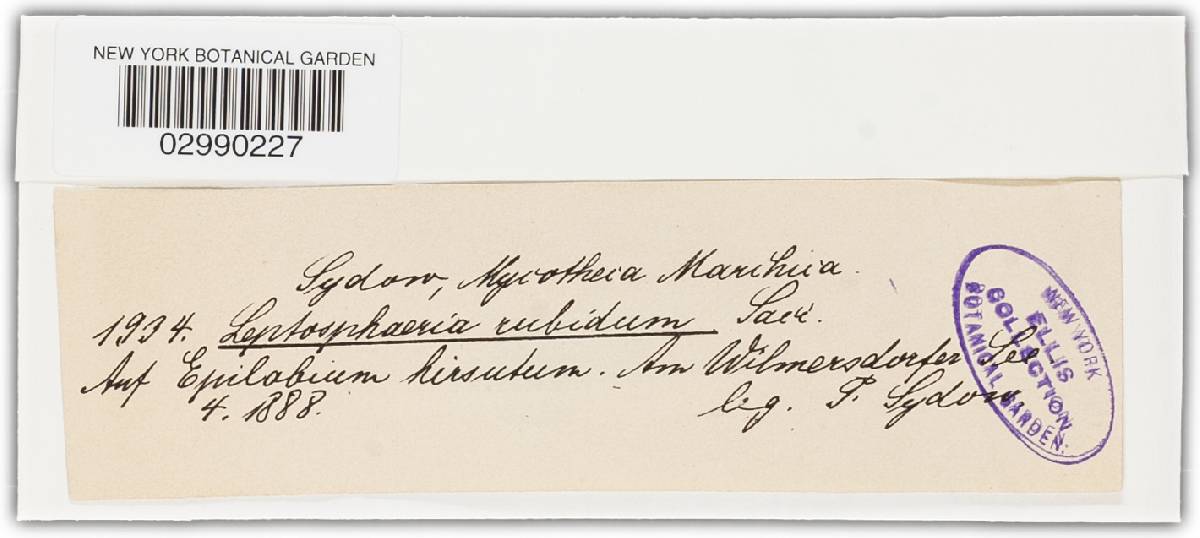 NEW YORK BOTANICAL GARDEN
02990227
Sydow, Mycotheca Marchica.
1934. Leptosphaeria rubidum Sacc.
Auf Epilobium hirsutum. Am Wilmersdorfer See
4. 1888. leg. P. Sydow.
NEW YORK
ELLIS
COLLECTION
BOTANICAL GARDEN.